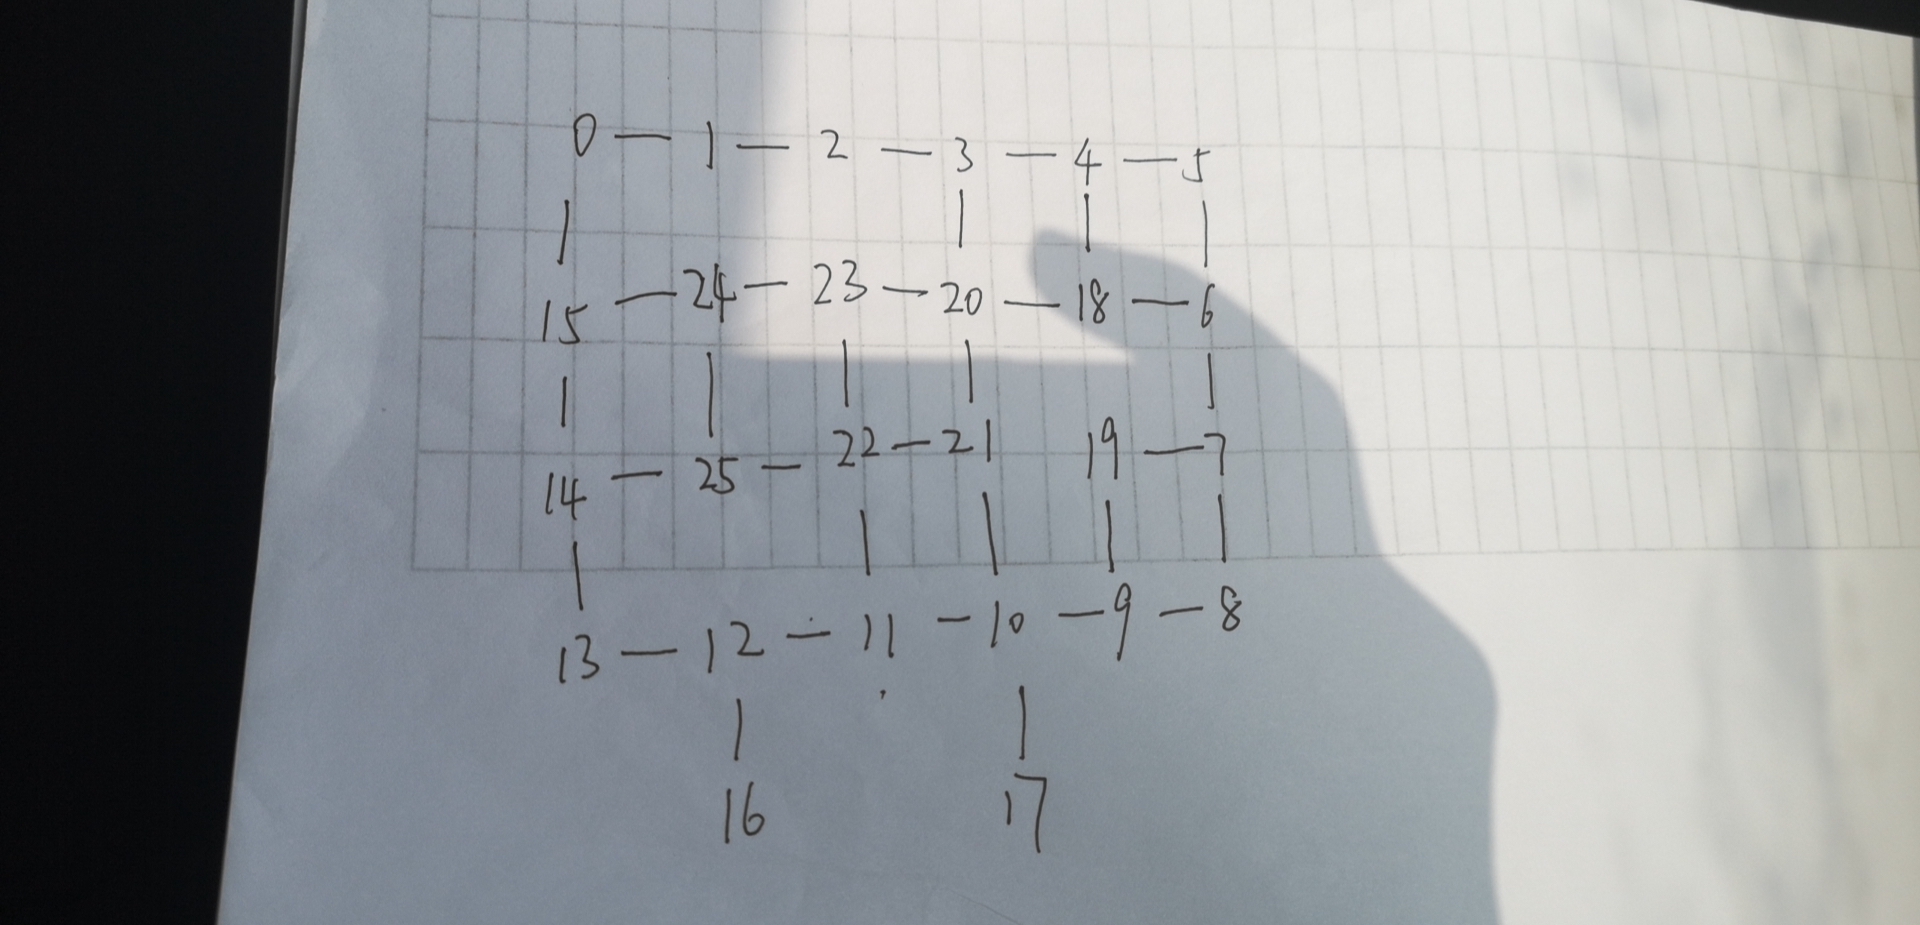 0 — 1 — 2 — 3 — 4 — 5
| | | |
15 — 24 — 23 — 20 — 18 — 6
| | | | |
14 — 25 — 22 — 21 19 — 7
| | | | |
13 — 12 — 11 — 10 — 9 — 8
| |
16 17